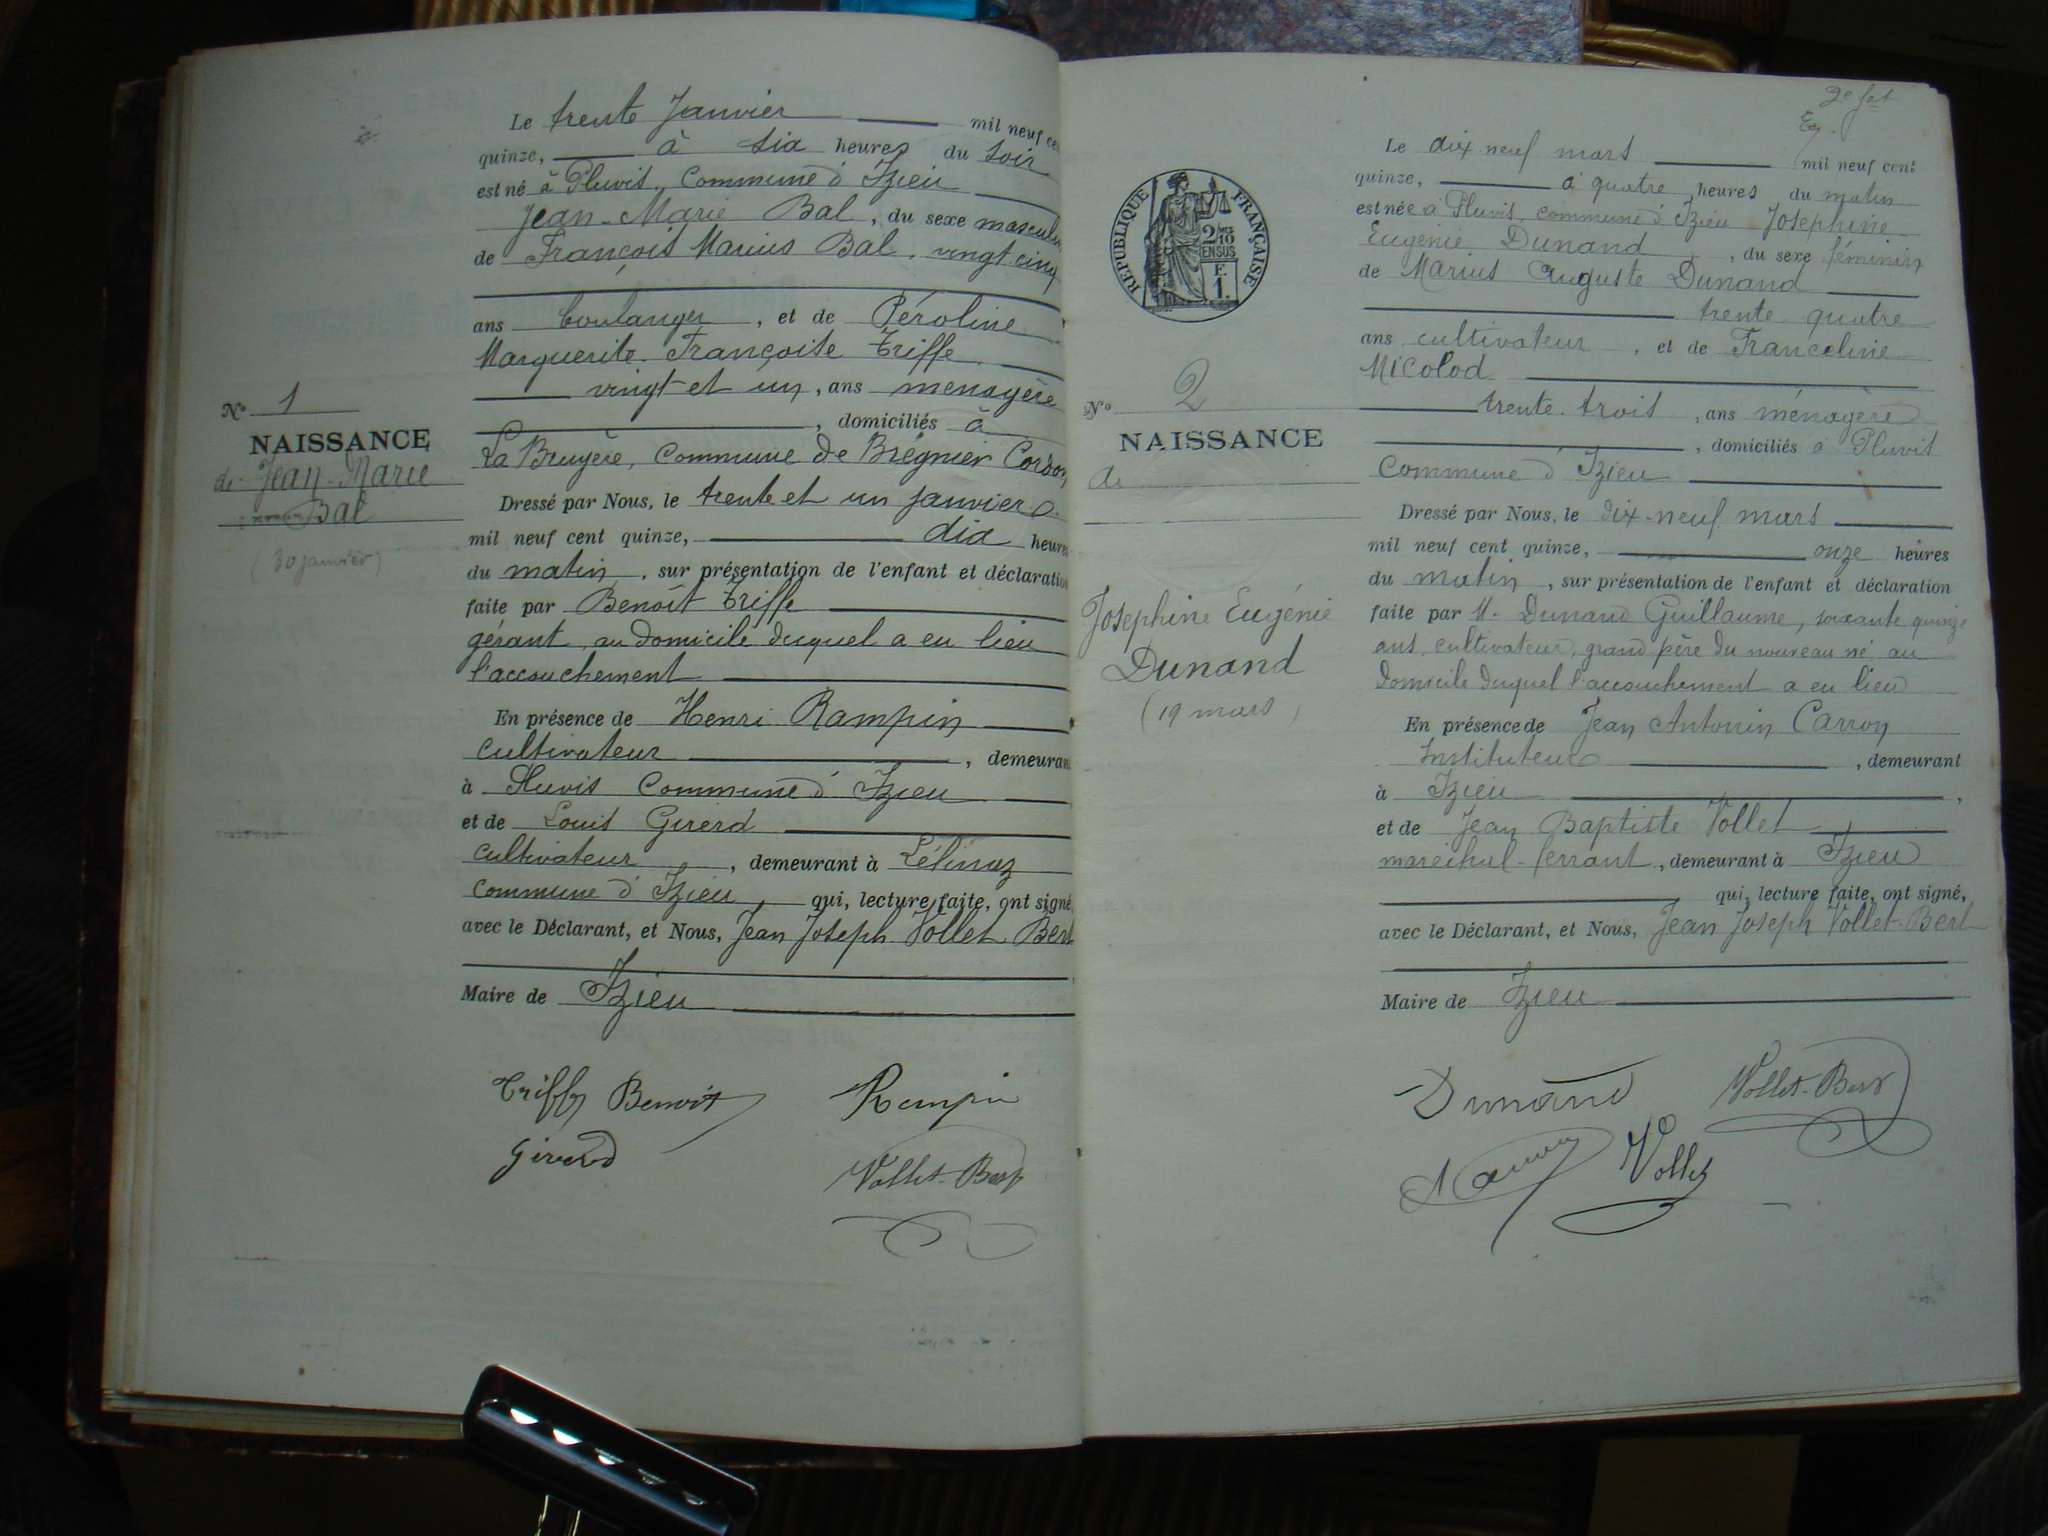 Le trente Janvier mil neuf ce
quinze, à six heures du soir
est né à Pluvis, commune d'Izieu
Jean-Marie Bal, du sexe masculin
de François Marius Bal, vingt cinq
ans boulanger, et de Péroline
Marguerite Françoise Triffe
vingt et un, ans menagère
, domiciliés à
La Bruyère, Commune de Brégnier Cordon
Nº 1
NAISSANCE
de Jean-Marie
Bal
(30 janvier)
Dressé par Nous, le trente et un janvier
mil neuf cent quinze, dix heures
du matin, sur présentation de l'enfant et déclaration
faite par Benoît Triffe
gérant, au domicile duquel a eu lieu
l'accouchement
En présence de Henri Rampin
cultivateur, demeurant
à Pluvis Commune d'Izieu
et de Louis Girerd
cultivateur, demeurant à Lélinaz
commune d'Izieu qui, lecture faite, ont signé,
avec le Déclarant, et Nous, Jean Joseph Vollet Bert
Maire de Izieu
Triffe Benoit Rampin
Girerd
Vollet-Bert
2e fet
RÉPUBLIQUE FRANÇAISE
2/10
EN SUS
F.
1.
Le dix neuf mars mil neuf cent
quinze, à quatre heures du matin
est née à Pluvis, commune d'Izieu Josephine
Eugénie Dunand, du sexe féminin
de Marius Auguste Dunand
trente quatre
ans cultivateur, et de Franceline
Micolod
trente-trois, ans ménagère
, domiciliés à Pluvis
Commune d'Izieu
Nº 2
NAISSANCE
de
Josephine Eugénie
Dunand
(19 mars)
Dressé par Nous, le dix-neuf mars
mil neuf cent quinze, onze heures
du matin, sur présentation de l'enfant et déclaration
faite par M. Dunand Guillaume, soixante quinze
ans, cultivateur, grand père du nouveau né, au
domicile duquel l'accouchement a eu lieu
En présence de Jean Antonin Carron
Instituteur, demeurant
à Izieu,
et de Jean Baptiste Vollet
maréchal-ferrant, demeurant à Izieu
qui, lecture faite, ont signé,
avec le Déclarant, et Nous, Jean Joseph Vollet-Bert
Maire de Izieu
Dunand Vollet-Bert
Vollet